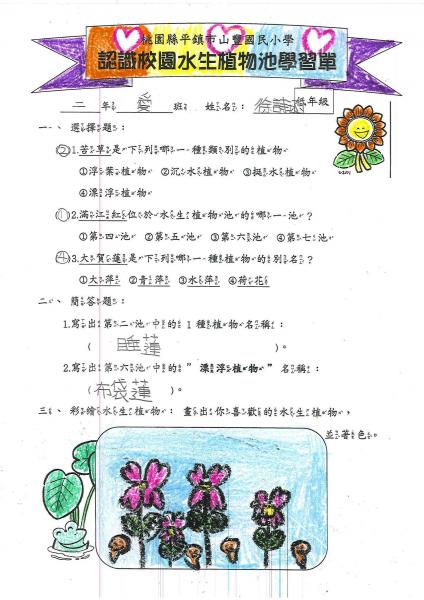 桃園縣平鎮市山豐國民小學
認識校園水生植物池學習單
低年級
二年愛班 姓名:徐
一、選擇題:
(2)1.苦草是下列哪一種類別的植物
①浮葉植物 ②沉水植物 ③挺水植物
④漂浮植物
(1)2.滿江紅位於水生植物池的哪一池?
①第四池 ②第五池 ③第六池 ④第七池
(4)3.大賀蓮是下列哪一種植物的別名?
①大萍 ②青萍 ③水萍 ④荷花
二、簡答題:
1.寫出第二池中的1種植物名稱:
(睡蓮)。
2.寫出第六池中的"漂浮植物"名稱:
(布袋蓮)。
三、彩繪水生植物:畫出你喜歡的水生植物,
並著色。